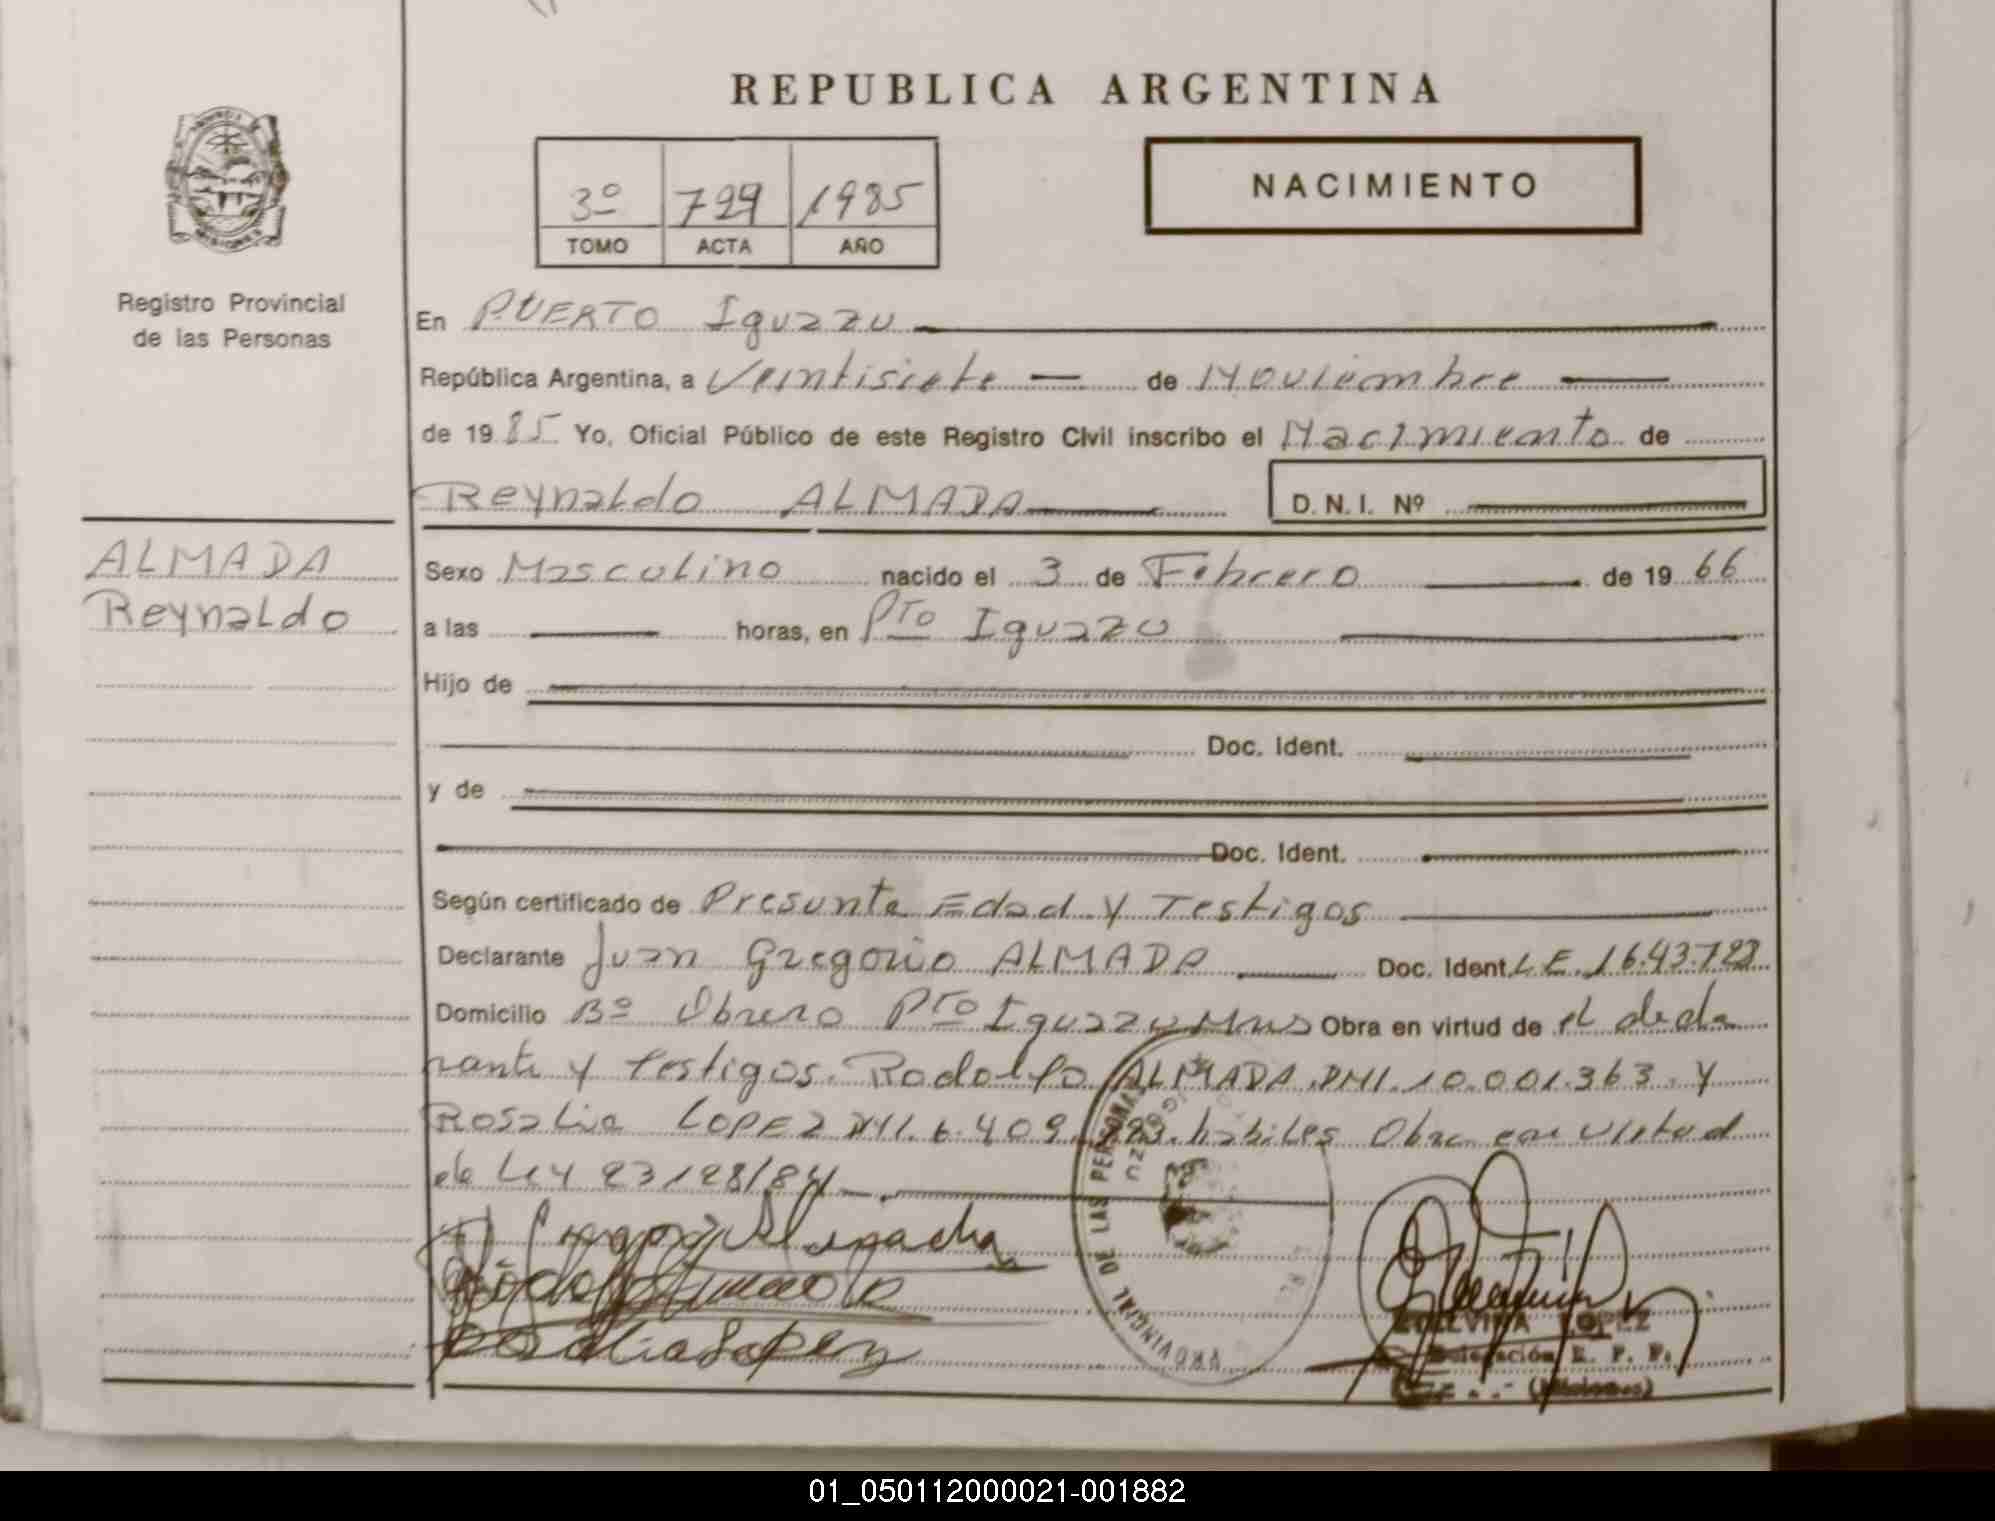 REPUBLICA ARGENTINA
PROVINCIA DE
MISIONES
3º 799 1985
TOMO ACTA AÑO
NACIMIENTO
Registro Provincial
de las Personas
En PUERTO Iguazu
República Argentina, a Veintisiete de Noviembre
de 1985 Yo, Oficial Público de este Registro Civil inscribo el Nacimiento de
Reynaldo ALMADA D. N. I. Nº
ALMADA
Reynaldo
Sexo Masculino nacido el 3 de Febrero de 1966
a las horas, en Pto Iguazu
Hijo de
Doc. Ident.
y de
Doc. Ident.
Según certificado de Presunta Edad y Testigos
Declarante Juan Gregorio ALMADA Doc. Ident. L.E. 1.643.723
Domicilio Bº Obrero Pto Iguazu Mnes Obra en virtud de el decla
rante y testigos. Rodolfo ALMADA DNI. 10.001.363. y
Rosalia LOPEZ DNI. 6.409.783. habiles Obra en virtud
de Ley 23128/84
Gregorio Almada
Rosalia Lopez
PROVINCIAL DE LAS PERSONAS
LOPEZ
Delegación R. P. P.
(Misiones)
01_050112000021-001882